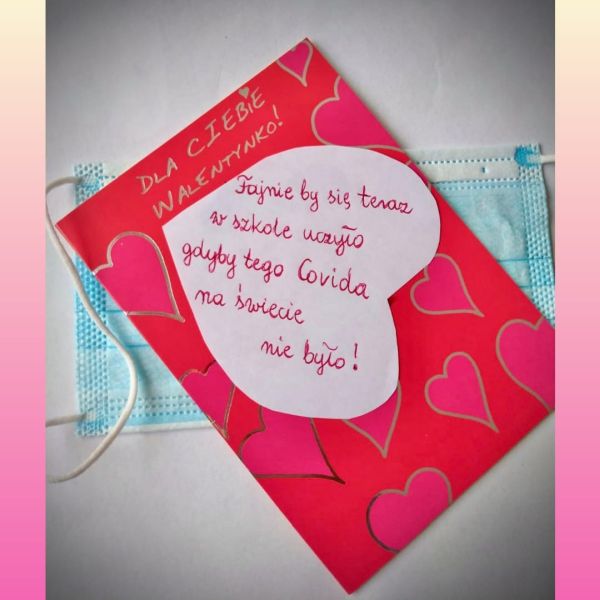 DLA CIEBIE
WALENTYNKO!
Fajnie by się teraz
w szkole uczyło
gdyby tego Covida
na świecie
nie było!